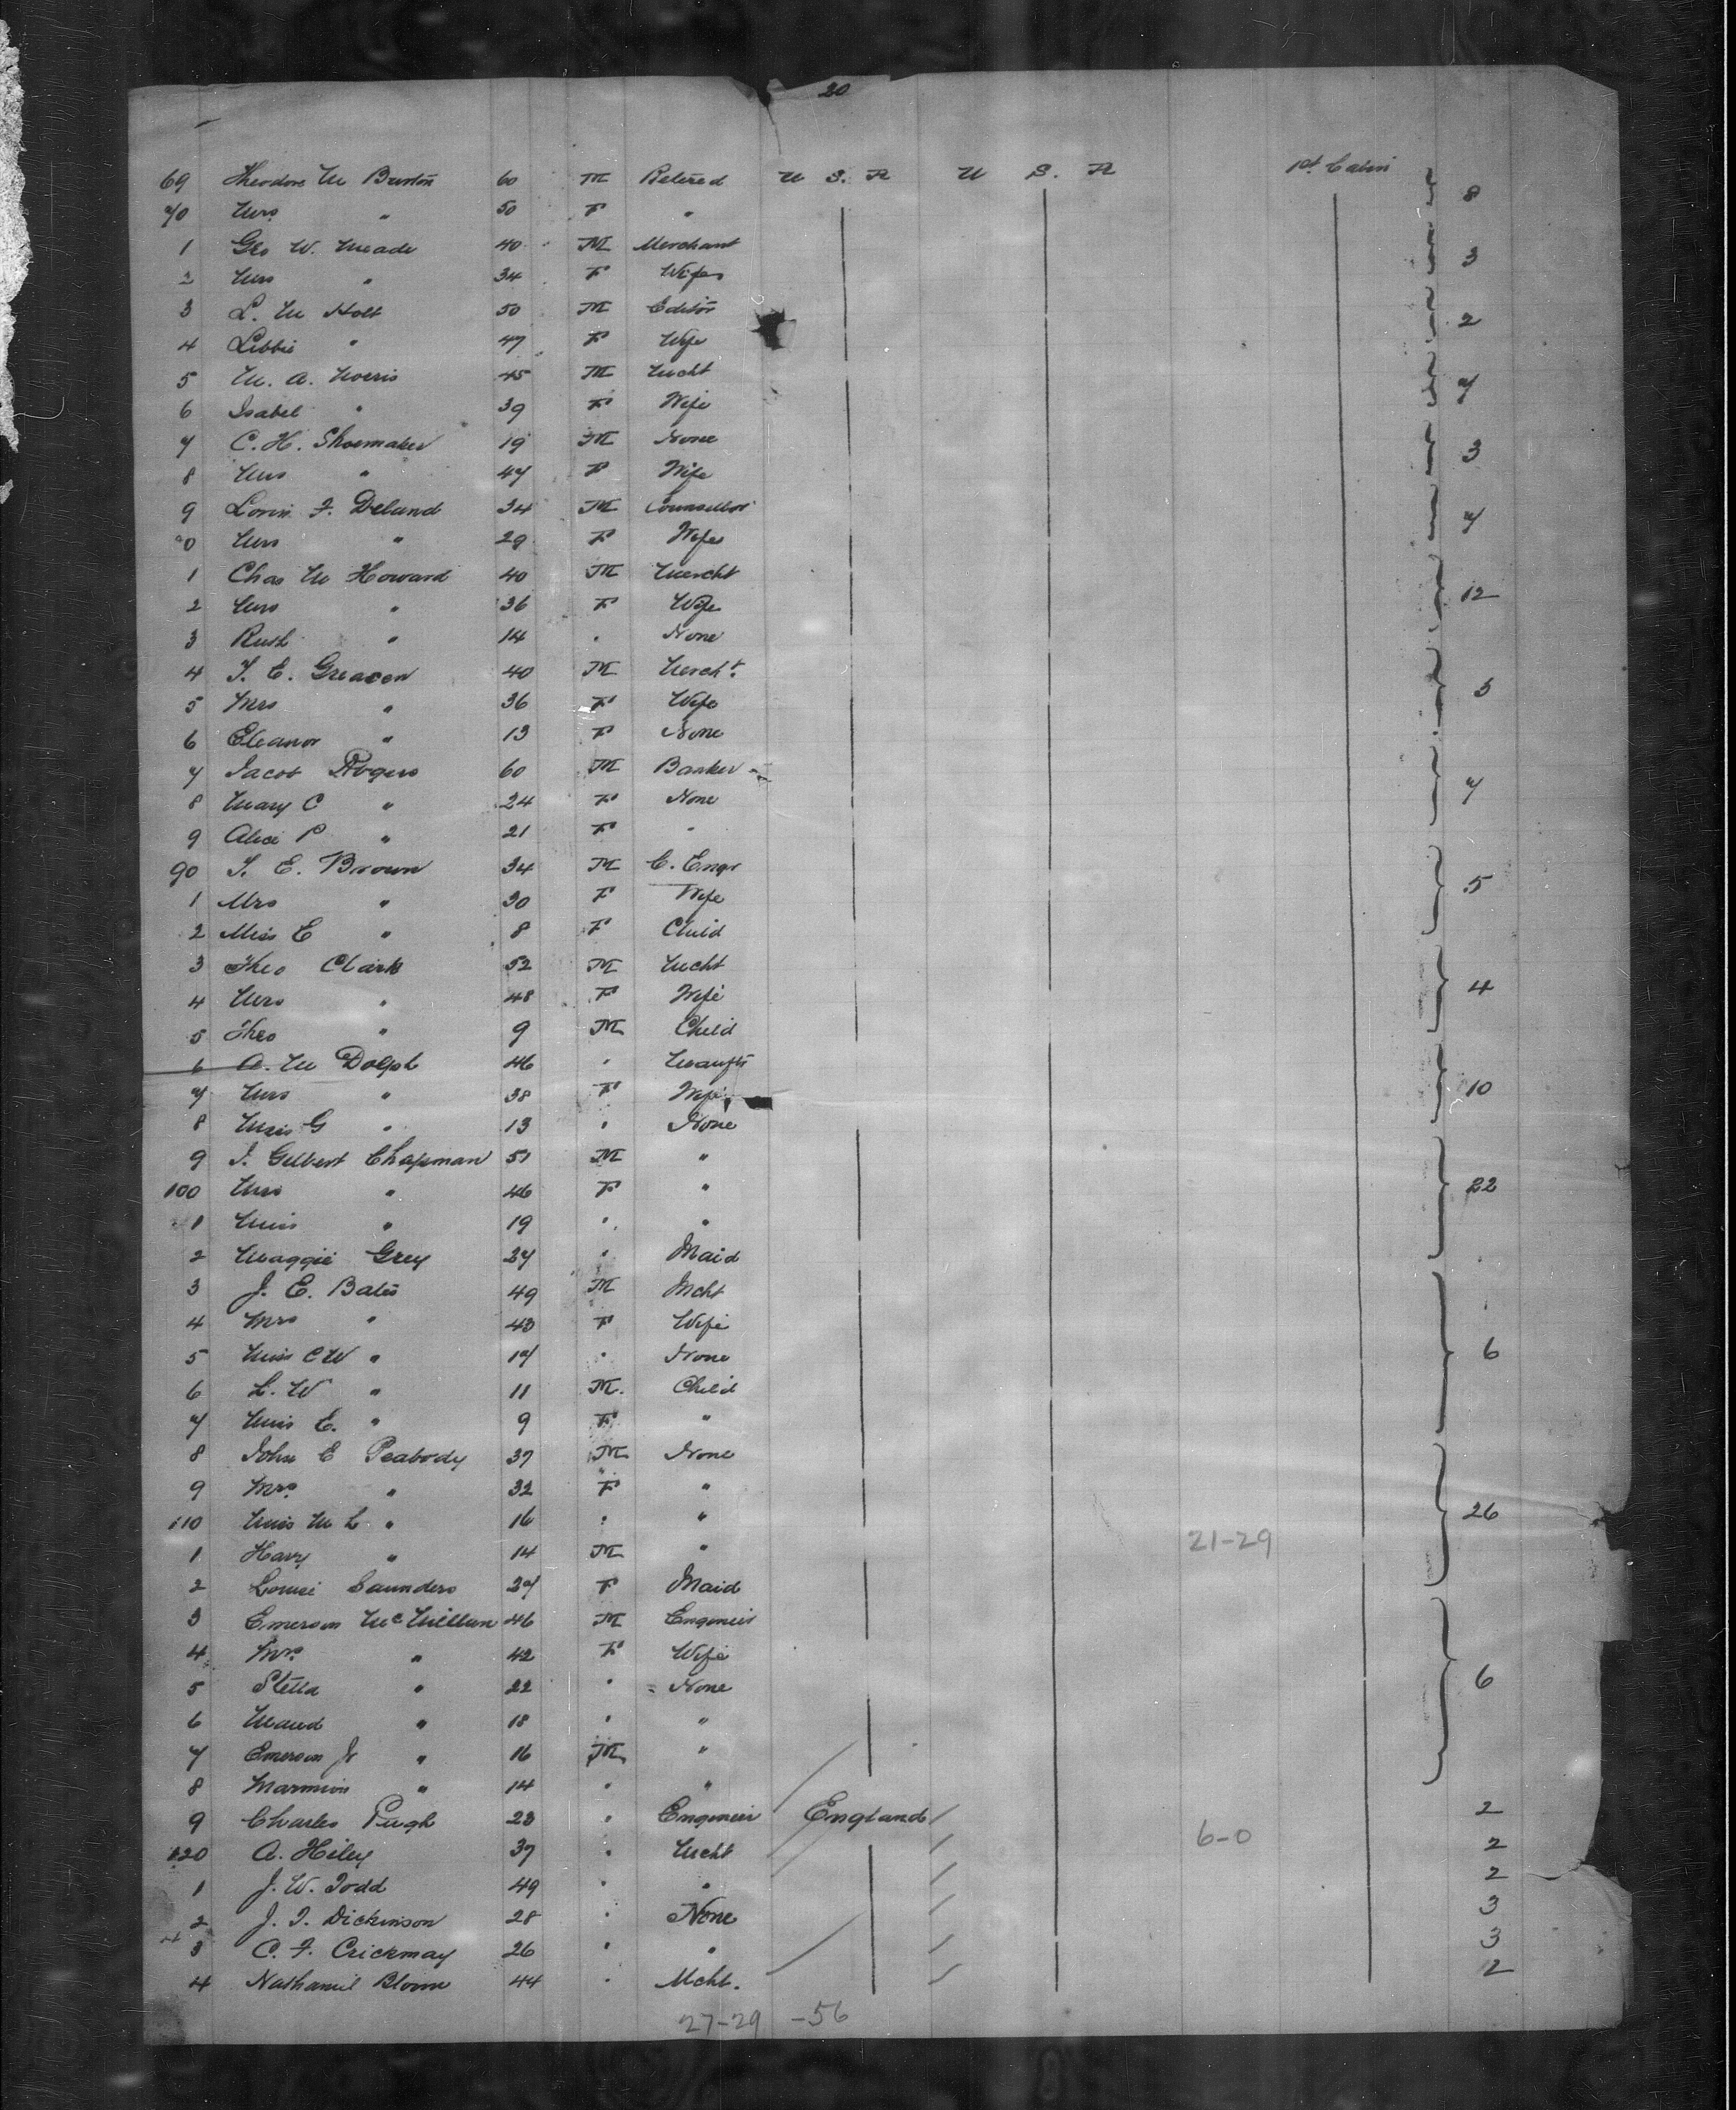 20
69 Theodore M Burton 60 M Retired U S. A U S. A 1st Cabin 8
70 Mrs " 50 F "
1 Geo W. Meade 40 M Merchant 3
2 Mrs " 34 F Wife
3 L. M Holt 50 M Editor 2
4 Libbie " 47 F Wife
5 M. A. Norris 45 M Mcht 7
6 Isabel " 39 F Wife
7 C. H. Shoemaker 19 M None 3
8 Mrs " 47 F Wife
9 Lorin F. Deland 34 M Counsellor 7
0 Mrs " 29 F Wife
1 Chas M Howard 40 M Mercht
2 Mrs " 36 F Wife 12
3 Ruth " 14 " None
4 T. E. Greacen 40 M Mercht.
5 Mrs " 36 F Wife 5
6 Eleanor " 13 F None
7 Jacob Rogers 60 M Banker
8 Mary C " 24 F None 7
9 Alice P " 21 F "
90 T. E. Brown 34 M C. Engr
1 Mrs " 30 F Wife 5
2 Miss E " 8 F Child
3 Theo Clark 52 M Mcht
4 Mrs " 48 F Wife 4
5 Theo " 9 M Child
6 A. M Dolph 46 " Manftr
7 Mrs " 38 F Wife 10
8 Miss G " 13 " None
9 J. Gilbert Chapman 51 M "
100 Mrs " 46 F " 22
1 Miss " 19 " "
2 Maggie Grey 27 " Maid
3 J. E. Bates 49 M Mcht
4 Mrs " 43 F Wife
5 Miss C W " 17 " None 6
6 L. W " 11 M. Child
7 Miss E. " 9 F "
8 John E Peabody 37 M None
9 Mrs " 32 F "
110 Miss M L " 16 " " 26
1 Harry " 14 M " 21-29
2 Louise Saunders 27 F Maid
3 Emerson McMillun 46 M Engineer
4 Mrs " 42 F Wife
5 Stella " 22 " None 6
6 Maud " 18 " "
7 Emerson Jr " 16 M "
8 Marmion " 14 " "
9 Charles Pugh 23 " Engineer England 2
120 A. Hiley 37 " Mcht 6-0 2
1 J. W. Todd 49 " " 2
2 J. T. Dickinson 28 " None 3
3 C. F. Crickmay 26 " " 3
4 Nathaniel Bloom 44 " Mcht. 2
27-29 -56